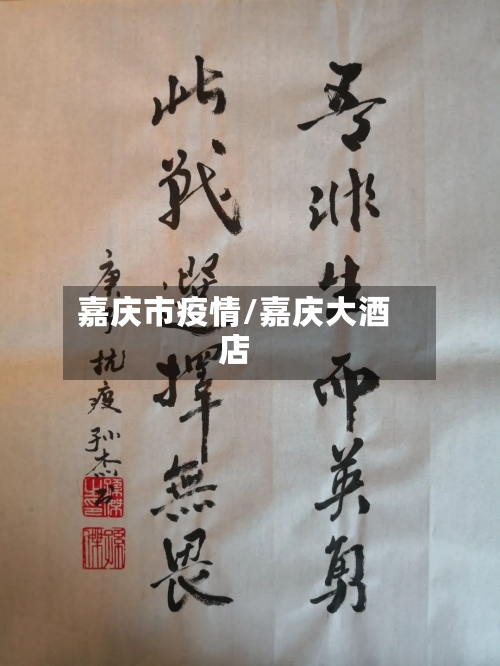 吾非生而英勇
此战選擇無畏
庚子抗疫孙杰书
嘉庆市疫情/嘉庆大酒
店